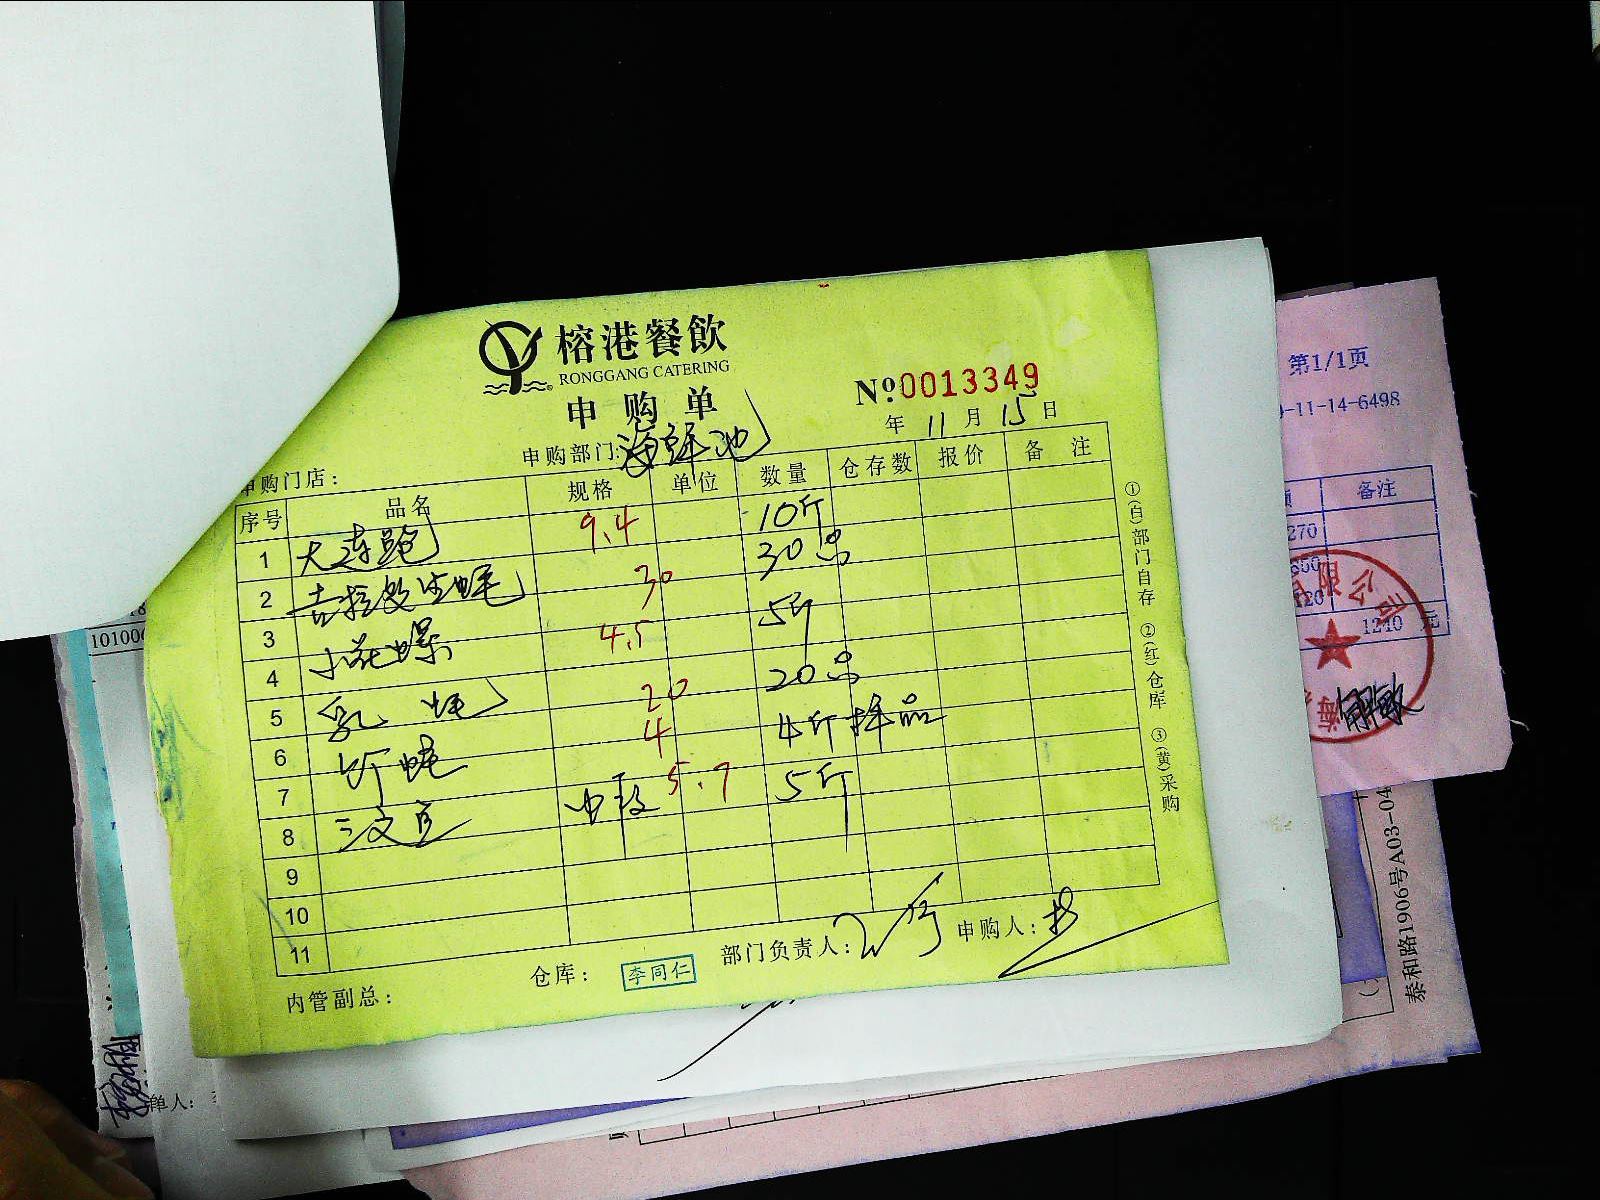 榕港餐飲
RONGGANG CATERING
申购单
№0013349
年 11 月 15 日
申购部门: 海鲜池
申购门店:
序号 品名 规格 单位 数量 仓存数 报价 备注
1 大连鲍 9.4 10斤
2 吉拉多生蚝 30 30只
3 小花螺 4.5 5斤
4 乳 20 20只
5 4 4斤 样品
6 三文鱼 中段 5.7 5斤
7
8
9
10
11
①(白)部门自存 ②(红)仓库 ③(黄)采购
内管副总:
仓库: 李同仁
部门负责人:
申购人:
第1/1页
-11-14-6498
备注
270
1240 元
限公司
泰和路1906号A03-04
单人: